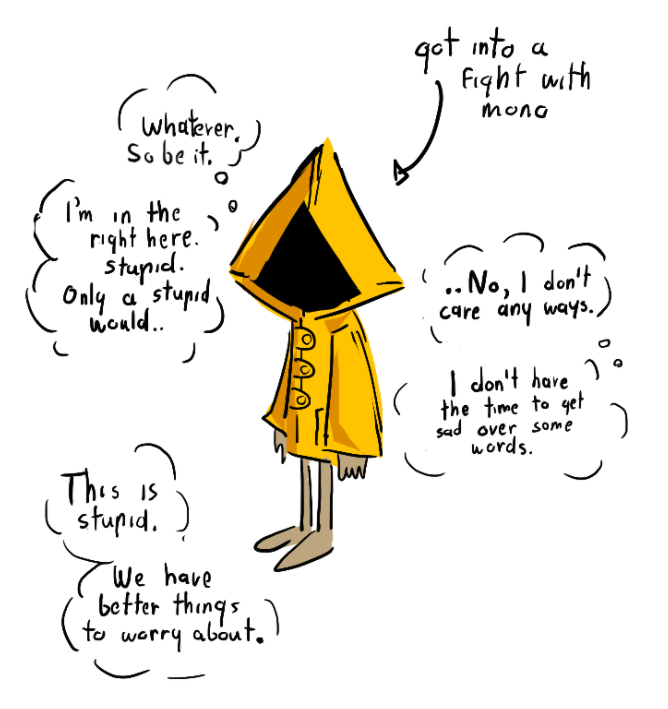 got into a
fight with
mono
Whatever.
So be it.
I'm in the
right here.
stupid.
Only a stupid
would..
..No, I don't
care any ways.
I don't have
the time to get
sad over some
words.
This is
stupid.
We have
better things
to worry about.